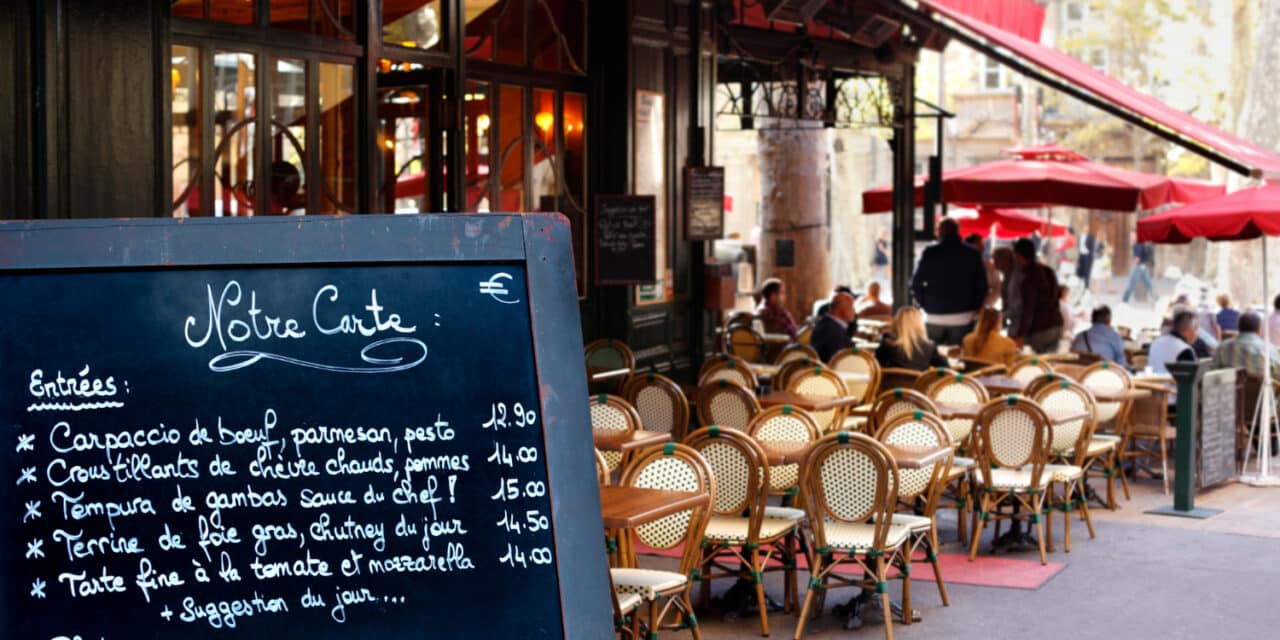 Notre Carte :
€
Entrées :
* Carpaccio de bœuf, parmesan, pesto 12.90
* Croustillants de chèvre chauds, pommes 14.00
* Tempura de gambas sauce du chef ! 15.00
* Terrine de foie gras, chutney du jour 14.50
* Tarte fine à la tomate et mozzarella 14.00
+ Suggestion du jour...